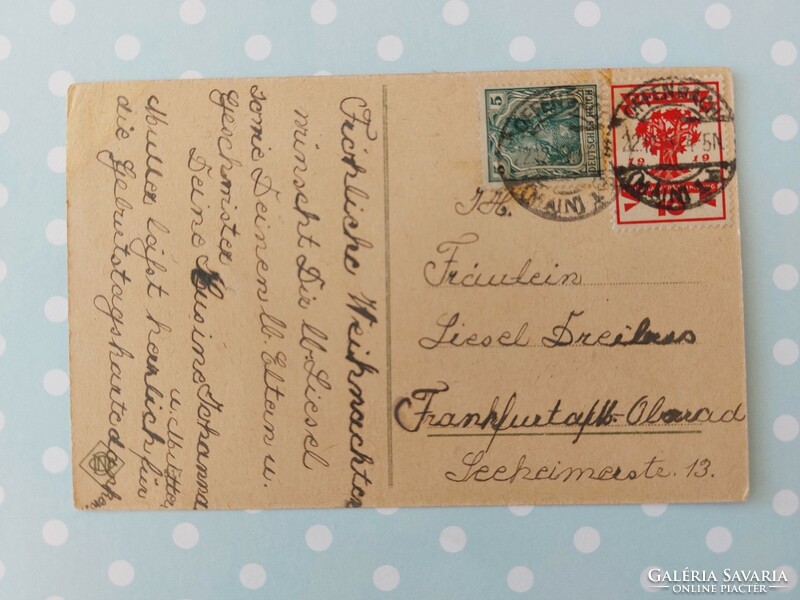 Fröhliche Weihnachten
wünscht Dir lb. Liesel
sowie Deinen lb. Eltern u.
Geschwister
Deine Kusine Johanna
u. Mutter
Mutter läßt herzlich für
die Geburtstagskarte danken
5 5
DEUTSCHES REICH
OFFENBACH
(MAIN)
OFFENBACH
22.
5N.
(MAIN)
1919
10
J.H.
Fräulein
Liesel
Frankfurt a/M-Oberrad
Seeheimerstr. 13.
GALÉRIA SAVARIA
ONLINE PIACTÉR